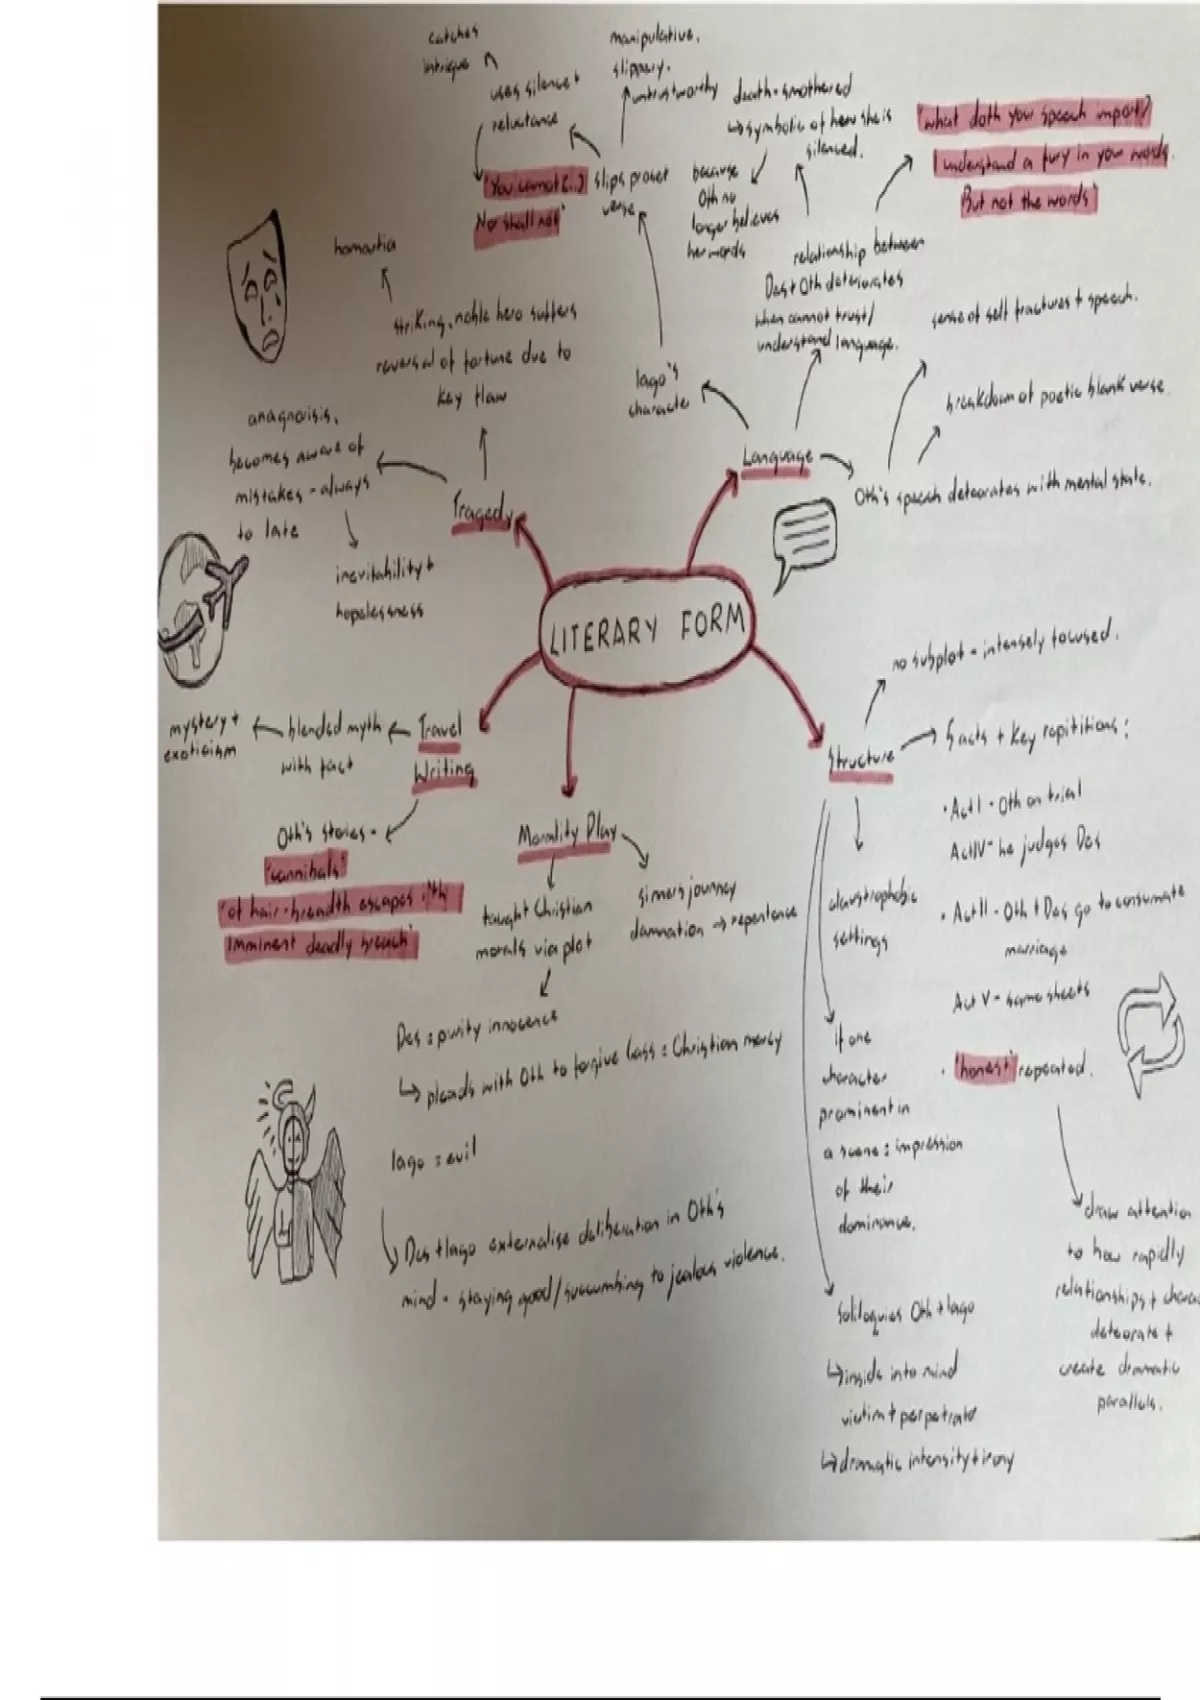 LITERARY FORM
Language
Iago's
character
slips prose+
verse
manipulative.
slippery.
untrustworthy
uses silence +
reluctance
catches
intrigue
'You cannot (..)
Nor shall not'
relationship between
Des + Oth deteriorates
when cannot trust/
understand language.
death = smothered
↳ symbolic of how she is
silenced.
because
Oth no
longer believes
her words
'what doth your speech import?
I understand a fury in your words
But not the words'
Oth's speech deteorates with mental state.
sense of self fractures + speech.
breakdown of poetic blank verse.
Structure
no subplot = intensely focused.
5 acts + key repititions:
• Act I - Oth on trial
Act IV - he judges Des
• Act II - Oth + Des go to consumate
marriage
Act V - same sheets
• 'honest' repeated.
draw attention
to how rapidly
relationships + charac
deteorate +
create dramatic
parallels.
claustrophobic
settings
if one
character
prominent in
a scene = impression
of their
dominance.
soliloquies Oth + Iago
↳ inside into mind
victim + perpetrator
↳ dramatic intensity + irony
Morality Play
sinners journey
damnation → repentence
taught Christian
morals via plot
Des = purity innocence
↳ pleads with Oth to forgive Cass = Christian mercy
Iago = evil
Des + Iago externalise deliberation in Oth's
mind - staying good/succumbing to jealous violence.
Travel
Writing
blended myth
with fact
mystery +
exoticism
Oth's stories -
'cannibals'
'of hair-breadth escapes i'th
imminent deadly breach'
Tragedy
striking, noble hero suffers
reversal of fortune due to
key flaw
hamartia
anagnorisis.
becomes aware of
mistakes - always
to late
inevitability +
hopelessness